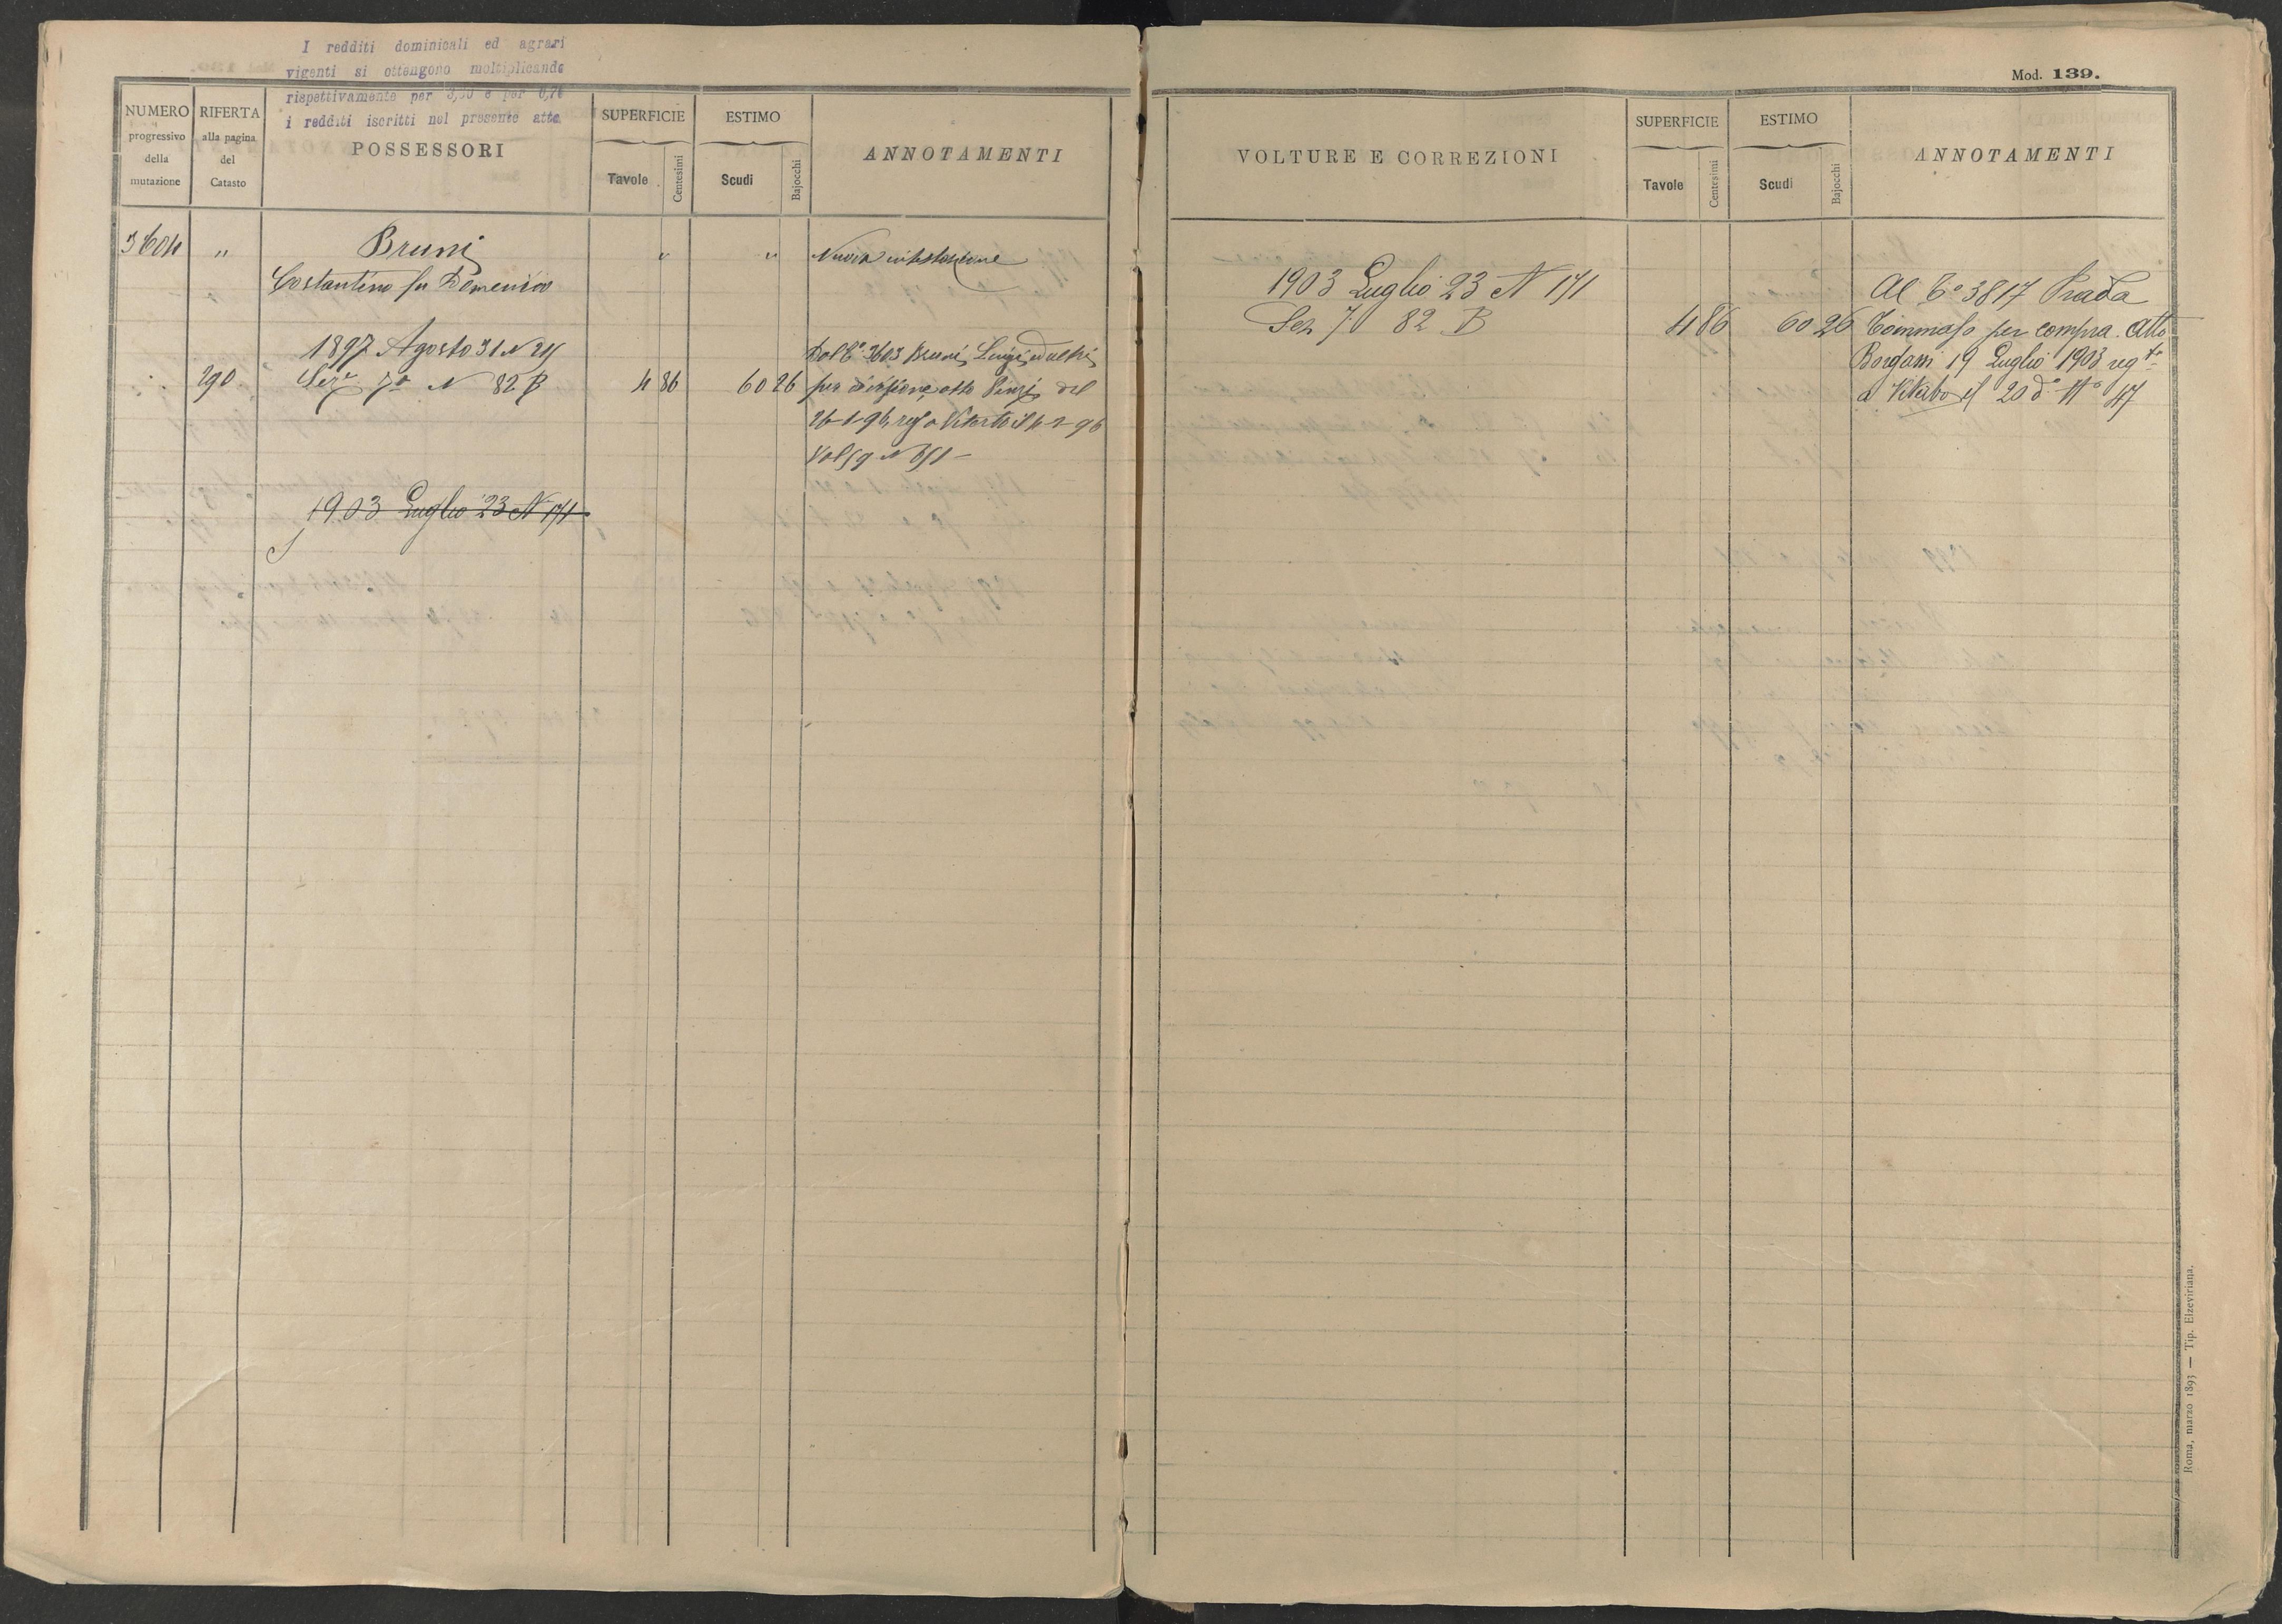 I redditi dominicali ed agrari
vigenti si ottengono moltiplicando
rispettivamente per e per
i redditi iscritti nel presente atto
NUMERO
progressivo
della
mutazione
RIFERTA
alla pagina
del
Catasto
POSSESSORI
SUPERFICIE
Tavole
Centesimi
ESTIMO
Scudi
Bajocchi
ANNOTAMENTI
3604 " Bruni " " Nuova intestazione
" Costantino fu Domenico
1897 Agosto 31 N
Dal 3603 Bruni Luigi ed altri
290 Sez.e 7a N 82 B 4 86 60 26 per divisione, atto Pinzi del
26-1-96, reg a Viterbo il
Vol 59 N
1903 Luglio 23 N 171
Mod. 139.
VOLTURE E CORREZIONI
SUPERFICIE
Tavole
Centesimi
ESTIMO
Scudi
Bajocchi
ANNOTAMENTI
1903 Luglio 23 N 171 Al 3817 Prada
Sez 7 82 B 4 86 60 26 Tommaso per compra. Atto
19 Luglio 1903 reg.to
a Viterbo il 20 do No 47
Roma, marzo 1893 — Tip. Elzeviriana.